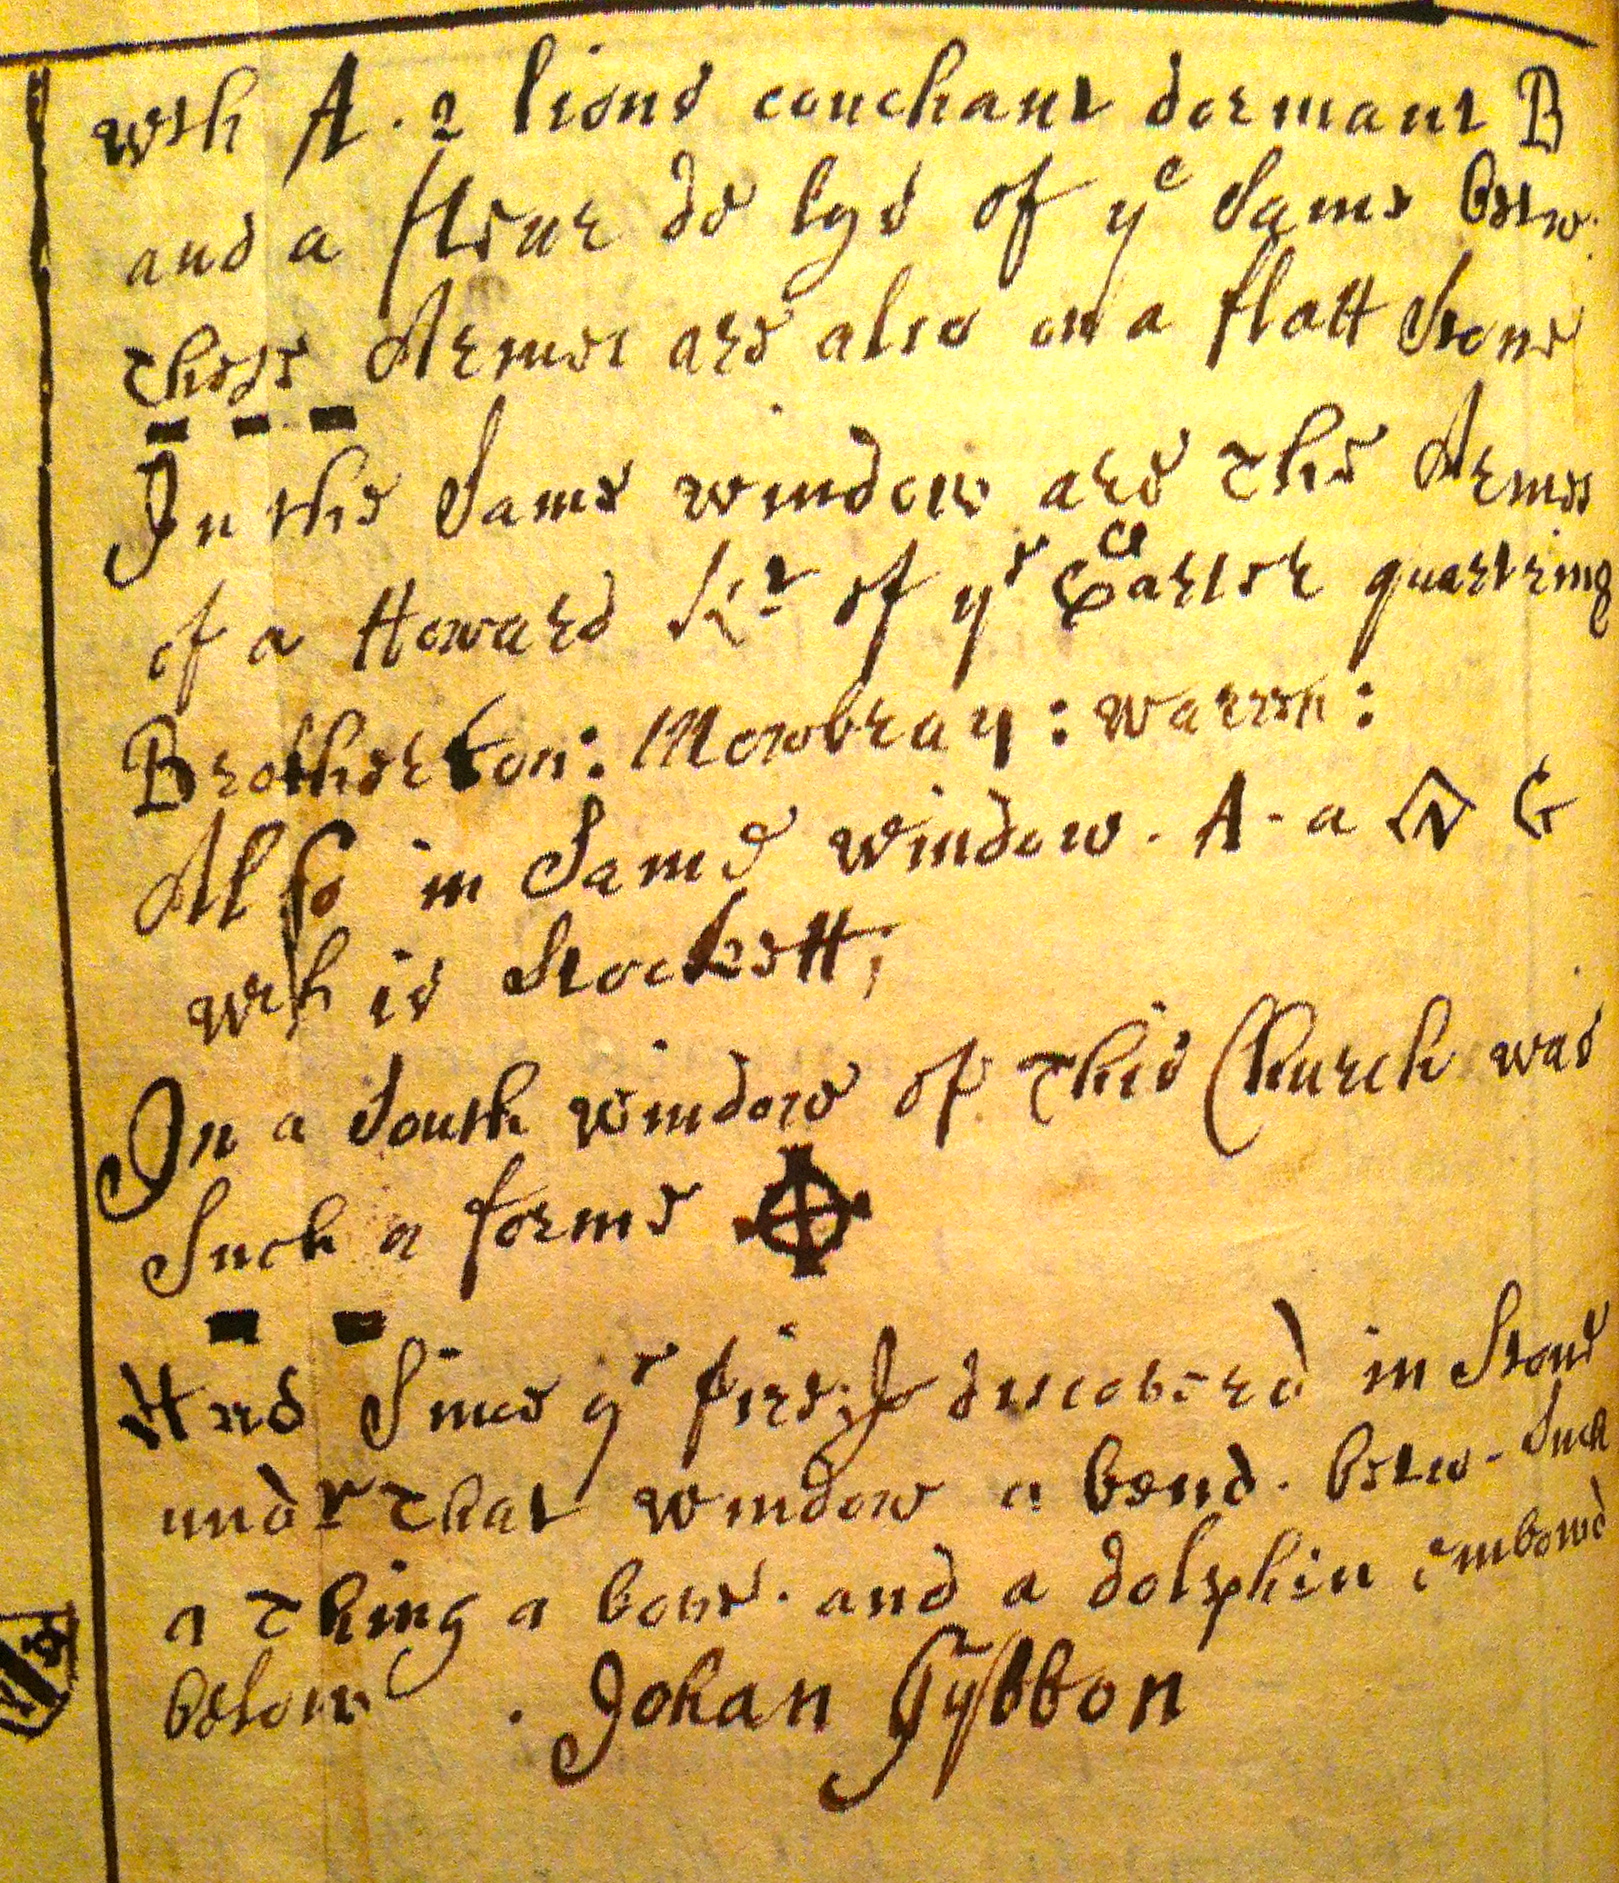 wth A. 2 lions couchant dormant B
and a flour de lys of ye same betw.
these Armes are also on a flatt stone
In the same window are the Armes
of a Howard Kt of ye Garter quartring
Brotherton: Mowbray: Warren:
Allso in same window. A. a G
wch is Stockett;
In a south window of this Church was
such a forme
And since yr first I discovered in stone
undr that window a bend. betw. such
a thing a bove. and a dolphin embowd
below. Johan Gybbon